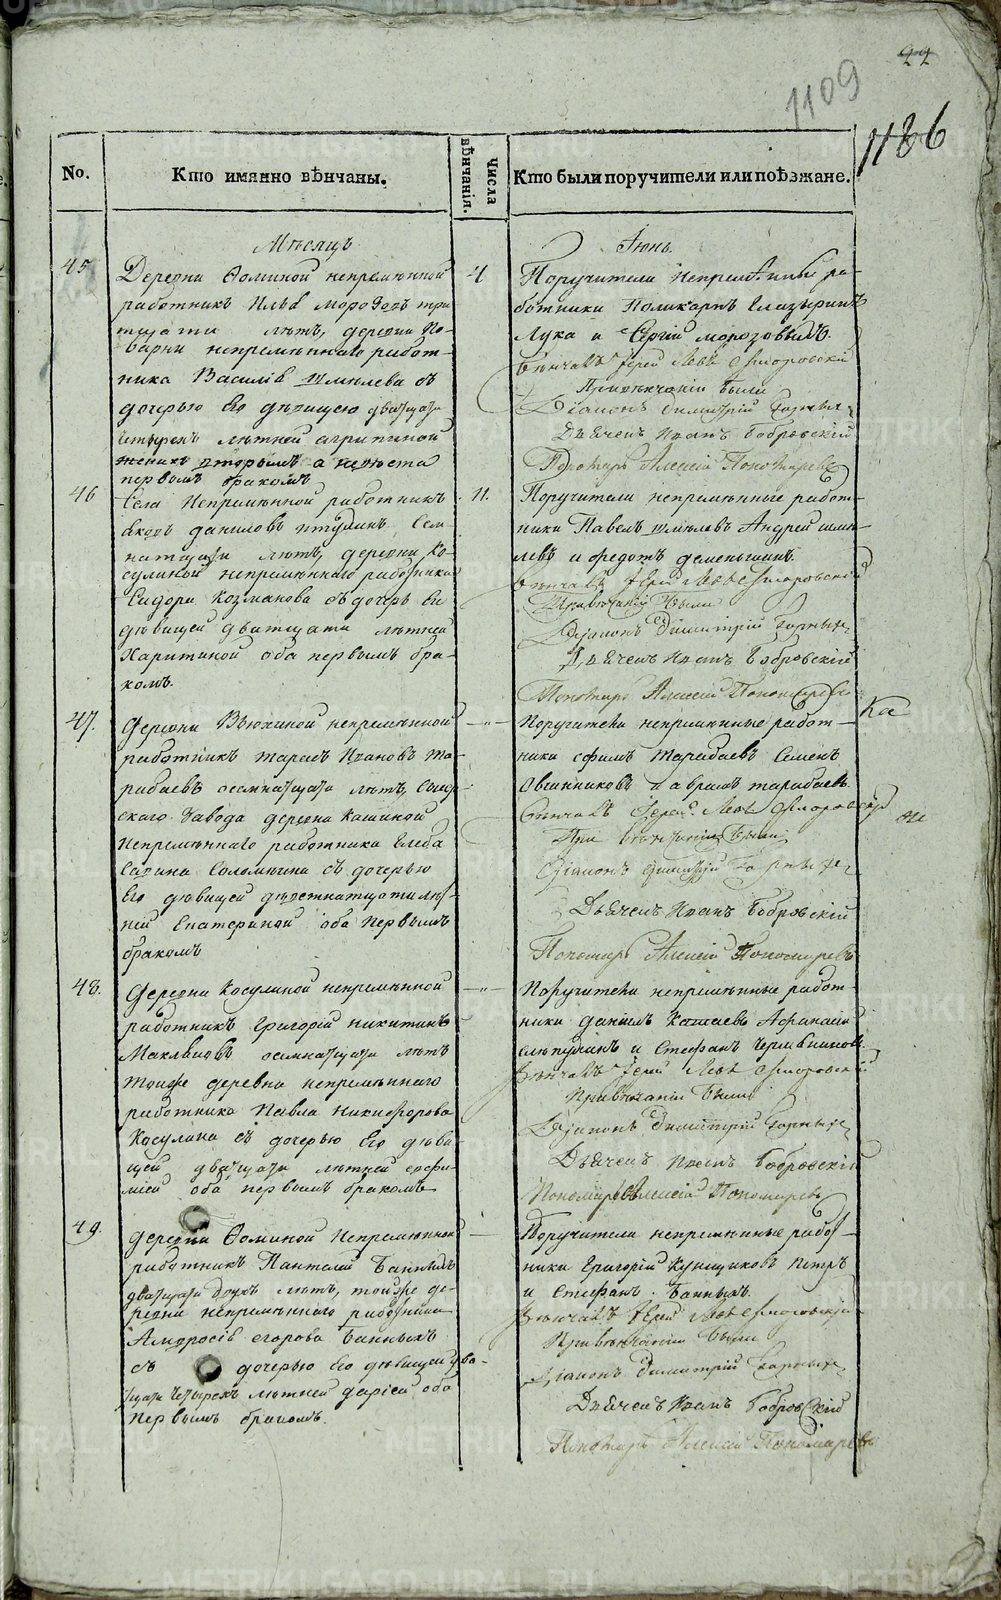 22
1109
1186
No.
Кто имянно вѣнчаны.
Числа вѣнчанія.
Кто были поручители или поѣзжане.
Мѣсяцъ
Іюнь
45
Деревни Ѳоминой непремѣнной
работникъ Илья Морозовъ три
тцати лѣтъ, деревни По-
варни непремѣннаго работ-
ника Василія Шмѣлева съ
дочерью Его дѣвицею дватцати
четырехъ лѣтней агрипиной
женихъ вторымъ а невѣста
первымъ бракомъ
4
Поручители непремѣнные ра-
ботники Поликарпъ
Лука и Сергій морозовыхъ.
Вѣнчалъ Іерей
При вѣнчаніи были
Діаконъ Димитрій Горныхъ
Дьячекъ Иванъ Бобровскій
Пономарь Алексій Пономаревъ
46
Села Непремѣнной работникъ
Яковъ даниловъ осм-
натцати лѣтъ, деревни Ко-
сулиной непремѣннаго работника
Сидора Козманова съ дочерь Ея
дѣвицей дватцати лѣтней
Харитиной оба первымъ бра-
комъ.
11.
Поручители непремѣнные работ-
ники Павелъ шмѣлевъ Андрей шмѣ-
левъ и Федотъ деменьшинъ.
Вѣнчалъ Іерей
При вѣнчаніи были
Діаконъ Димитрій Горныхъ
Дьячекъ Иванъ Бобровскій
Пономарь Алексій Пономаревъ
47.
деревни Вьюхиной непремѣнной
работникъ тарасъ Ивановъ та-
рабаевъ осмнатцати лѣтъ, Сысер-
скаго Завода деревни Кашиной
непремѣннаго работника Глеба
съ дочерью
Его дѣвицей девятнатцати лѣт-
ней Екатериной оба первымъ
бракомъ
— " —
Поручители непремѣнные работ-
ники Тарабаевъ Семенъ
Овчинниковъ Гаврилъ тарабаевъ
Вѣнчалъ Іерей
При вѣнчаніи были
Діаконъ Димитрій Горныхъ
Дьячекъ Иванъ Бобровскій
Пономарь Алексій Пономаревъ
48.
деревни Косулиной непремѣнной
работникъ Григорій никитинъ
осмнатцати лѣтъ
тойже деревни непремѣннаго
работника Павла Никифорова
Косулина съ дочерью Его дѣви-
цей дватцати лѣтней евфи-
міей оба первымъ бракомъ
— " —
Поручители непремѣнные работ-
ники данилъ Катаевъ Афанасій
и Стефанъ
Вѣнчалъ Іерей
При вѣнчаніи были
Діаконъ Димитрій Горныхъ
Дьячекъ Иванъ Бобровскій
Пономарь Алексій Пономаревъ
49.
деревни Ѳоминой Непремѣнной
работникъ Пантелей Банныхъ
дватцати двухъ лѣтъ, тойже де-
ревни непремѣннаго работника
Амвросія егорова Банныхъ
съ дочерью Его дѣвицей два-
тцати четырехъ лѣтней даріей оба
первымъ бракомъ.
—
Поручители непремѣнные работ-
ники Григорій Кунщиковъ Петръ
и Стефанъ Банныхъ.
Вѣнчалъ Іерей
При вѣнчаніи были
Діаконъ Димитрій Горныхъ
Дьячекъ Иванъ Бобровскій
Пономарь Алексій Пономаревъ
METRIKI.GASO-URAL.RU